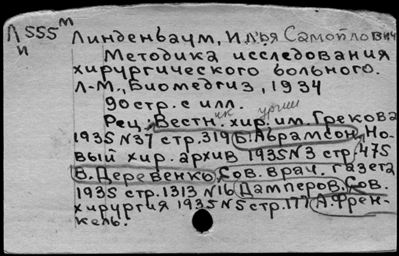 Л 555 м
и
Линденбаум, Илья Самойлович
Методика исследования
хирургического больного.
Л-М., Биомедгиз, 1934
90 стр. с илл.
Рец.: Вестник хирургии им. Грекова
1935 N37 стр. 319 Б. Абрамсон, Но-
вый хир. архив 1935 N3 стр. 475
В. Деревенко, Сов. врач. газета
1935 стр. 1313 N16 Дамперов. Сов.
хирургия 1935 N5 стр. 177 А. Френ-
кель.